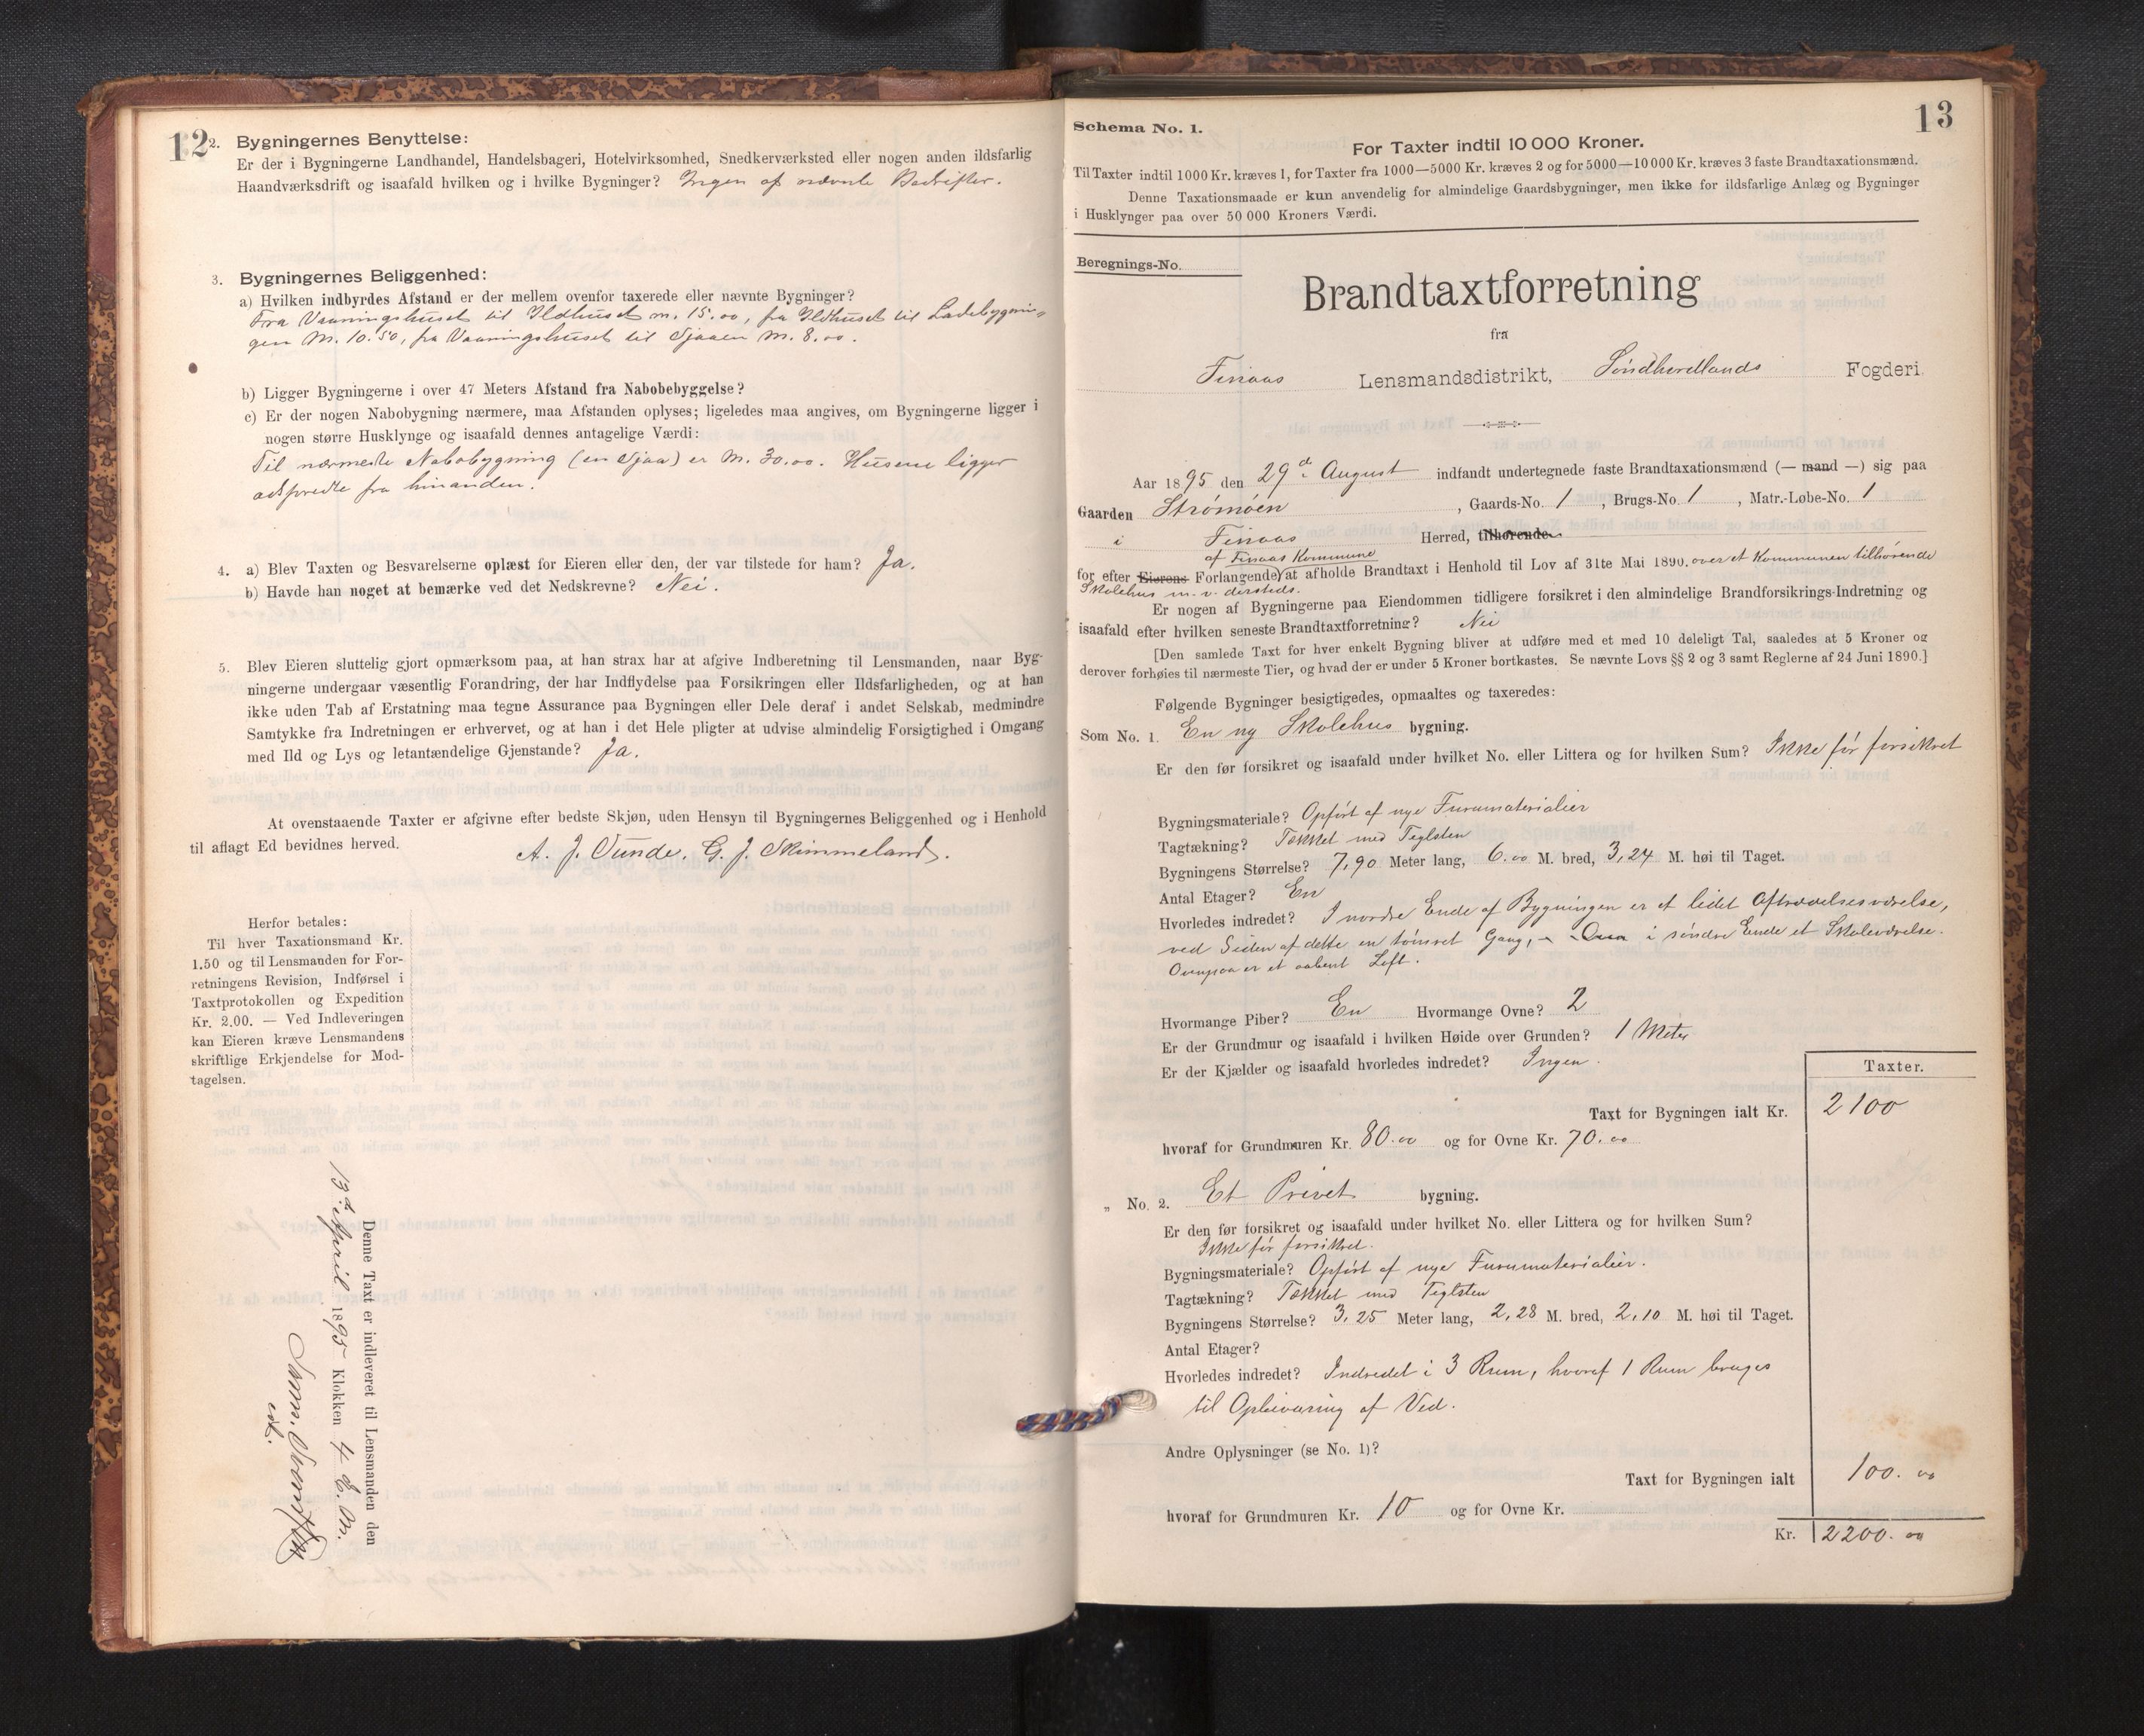 12
2. Bygningernes Benyttelse:
Er der i Bygningerne Landhandel, Handelsbageri, Hotelvirksomhed, Snedkerværksted eller nogen anden ildsfarlig
Haandværksdrift og isaafald hvilken og i hvilke Bygninger? Ingen af nævnte Bedrifter.
3. Bygningernes Beliggenhed:
a) Hvilken indbyrdes Afstand er der mellem ovenfor taxerede eller nævnte Bygninger?
Fra Vaaningshuset til Ildhuset m. 15.00, fra Ildhuset til Ladebygnin-
gen M. 10.50, fra Vaaningshuset til Sjaaen M. 8.00.
b) Ligger Bygningerne i over 47 Meters Afstand fra Nabobebyggelse?
c) Er der nogen Nabobygning nærmere, maa Afstanden oplyses; ligeledes maa angives, om Bygningerne ligger i
nogen større Husklynge og isaafald dennes antagelige Værdi:
Til nærmeste Nabobygning (en Sjaa) er M. 30.00. Husene ligger
adspredte fra hinanden.
4. a) Blev Taxten og Besvarelserne oplæst for Eieren eller den, der var tilstede for ham? Ja.
b) Havde han noget at bemærke ved det Nedskrevne? Nei.
5. Blev Eieren sluttelig gjort opmærksom paa, at han strax har at afgive Indberetning til Lensmanden, naar Byg-
ningerne undergaar væsentlig Forandring, der har Indflydelse paa Forsikringen eller Ildsfarligheden, og at han
ikke uden Tab af Erstatning maa tegne Assurance paa Bygningen eller Dele deraf i andet Selskab, medmindre
Samtykke fra Indretningen er erhvervet, og at han i det Hele pligter at udvise almindelig Forsigtighed i Omgang
med Ild og Lys og letantændelige Gjenstande? Ja.
At ovenstaaende Taxter er afgivne efter bedste Skjøn, uden Hensyn til Bygningernes Beliggenhed og i Henhold
til aflagt Ed bevidnes herved.
A. J. Tunde. G. J. Skimmeland.
Herfor betales:
Til hver Taxationsmand Kr.
1.50 og til Lensmanden for For-
retningens Revision, Indførsel i
Taxtprotokollen og Expedition
Kr. 2.00. — Ved Indleveringen
kan Eieren kræve Lensmandens
skriftlige Erkjendelse for Mod-
tagelsen.
Denne Taxt er indleveret til Lensmanden den
13d April 1895 Klokken 4 E. M.
13
Schema No. 1.
For Taxter indtil 10 000 Kroner.
Til Taxter indtil 1000 Kr. kræves 1, for Taxter fra 1000—5000 Kr. kræves 2 og for 5000—10000 Kr. kræves 3 faste Brandtaxationsmænd.
Denne Taxationsmaade er kun anvendelig for almindelige Gaardsbygninger, men ikke for ildsfarlige Anlæg og Bygninger
i Husklynger paa over 50 000 Kroners Værdi.
Beregnings-No.
Brandtaxtforretning
fra
Finaas Lensmandsdistrikt, Søndhordlands Fogderi
Aar 1895 den 29d August indfandt undertegnede faste Brandtaxationsmænd (— mand —) sig paa
Gaarden Strømøen, Gaards-No. 1, Brugs-No. 1, Matr.-Løbe-No. 1
i Finaas Herred, tilhørende
af Finaas Kommune
for efter Eierens Forlangende at afholde Brandtaxt i Henhold til Lov af 31te Mai 1890. over et Kommunen tilhørende
Skolehus m. v. dersteds.
Er nogen af Bygningerne paa Eiendommen tidligere forsikret i den almindelige Brandforsikrings-Indretning og
isaafald efter hvilken seneste Brandtaxtforretning? Nei
[Den samlede Taxt for hver enkelt Bygning bliver at udføre med et med 10 deleligt Tal, saaledes at 5 Kroner og
derover forhøies til nærmeste Tier, og hvad der er under 5 Kroner bortkastes. Se nævnte Lovs §§ 2 og 3 samt Reglerne af 24 Juni 1890.]
Følgende Bygninger besigtigedes, opmaaltes og taxeredes:
Som No. 1. En ny Skolehus bygning.
Er den før forsikret og isaafald under hvilket No. eller Littera og for hvilken Sum? Ikke før forsikret
Bygningsmateriale? Opført af nye Furumaterialier
Tagtækning? Tækket med Teglsten
Bygningens Størrelse? 7,90 Meter lang, 6.00 M. bred, 3,24 M. høi til Taget.
Antal Etager? En
Hvorledes indredet? I nordre Ende af Bygningen er et lidet Aftrædelsesværelse,
ved Siden af dette en tømret Gang, i søndre Ende et Skoleværelse.
Ovenpaa er et aabent Loft.
Hvormange Piber? En Hvormange Ovne? 2
Er der Grundmur og isaafald i hvilken Høide over Grunden? 1 Meter
Er der Kjælder og isaafald hvorledes indredet? Ingen.
Taxter.
Taxt for Bygningen ialt Kr. 2100
hvoraf for Grundmuren Kr. 80.00 og for Ovne Kr. 70.00
„ No. 2. Et Privet bygning.
Er den før forsikret og isaafald under hvilket No. eller Littera og for hvilken Sum?
Ikke før forsikret.
Bygningsmateriale? Opført af nye Furumaterialier.
Tagtækning? Tækket med Teglsten
Bygningens Størrelse? 3,25 Meter lang, 2,28 M. bred, 2,10 M. høi til Taget.
Antal Etager?
Hvorledes indredet? Indredet i 3 Rum, hvoraf 1 Rum bruges
til Opbevaring af Ved.
Andre Oplysninger (se No. 1)?
Taxt for Bygningen ialt 100.00
hvoraf for Grundmuren Kr. 10 og for Ovne Kr.
Kr. 2200.00